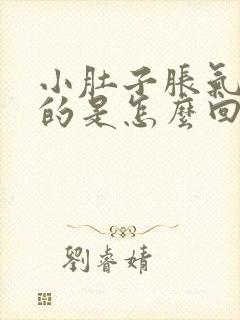 小肚子脹氣
的是怎麼回
劉睿婧